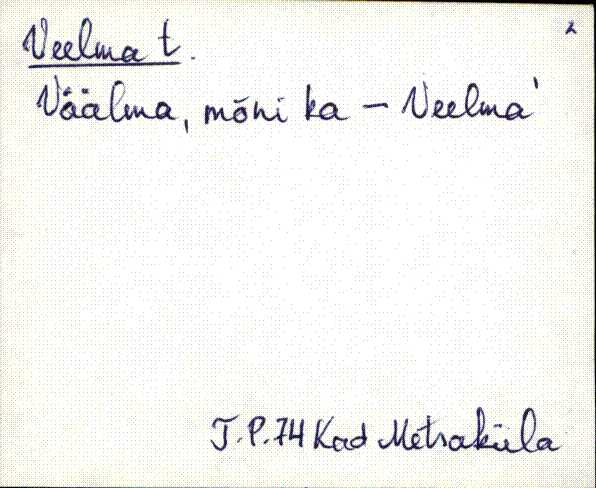 2
Veelma t.
Väälma, mõni ka – Veelma'
J.P. 74 Kad Metsaküla